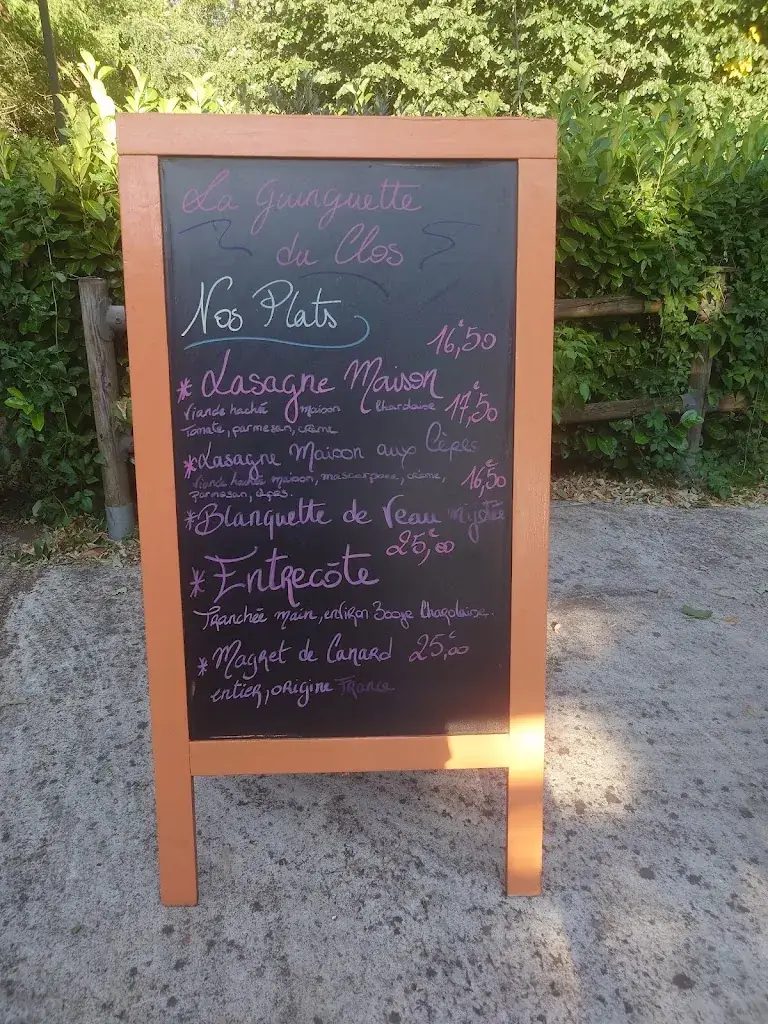 La Guinguette
du Clos
Nos Plats
16,€50
* Lasagne Maison
Viande haché maison Charolaise
17,€50
Tomate, parmesan, crème
* Lasagne Maison aux Cèpes
Viande haché maison, mascarpone, crème,
16,€50
parmesan, cèpes.
* Blanquette de Veau
25,€00
* Entrecôte
Tranchée main, environ 300gr Charolaise.
* Magret de Canard 25,€00
entier, origine France